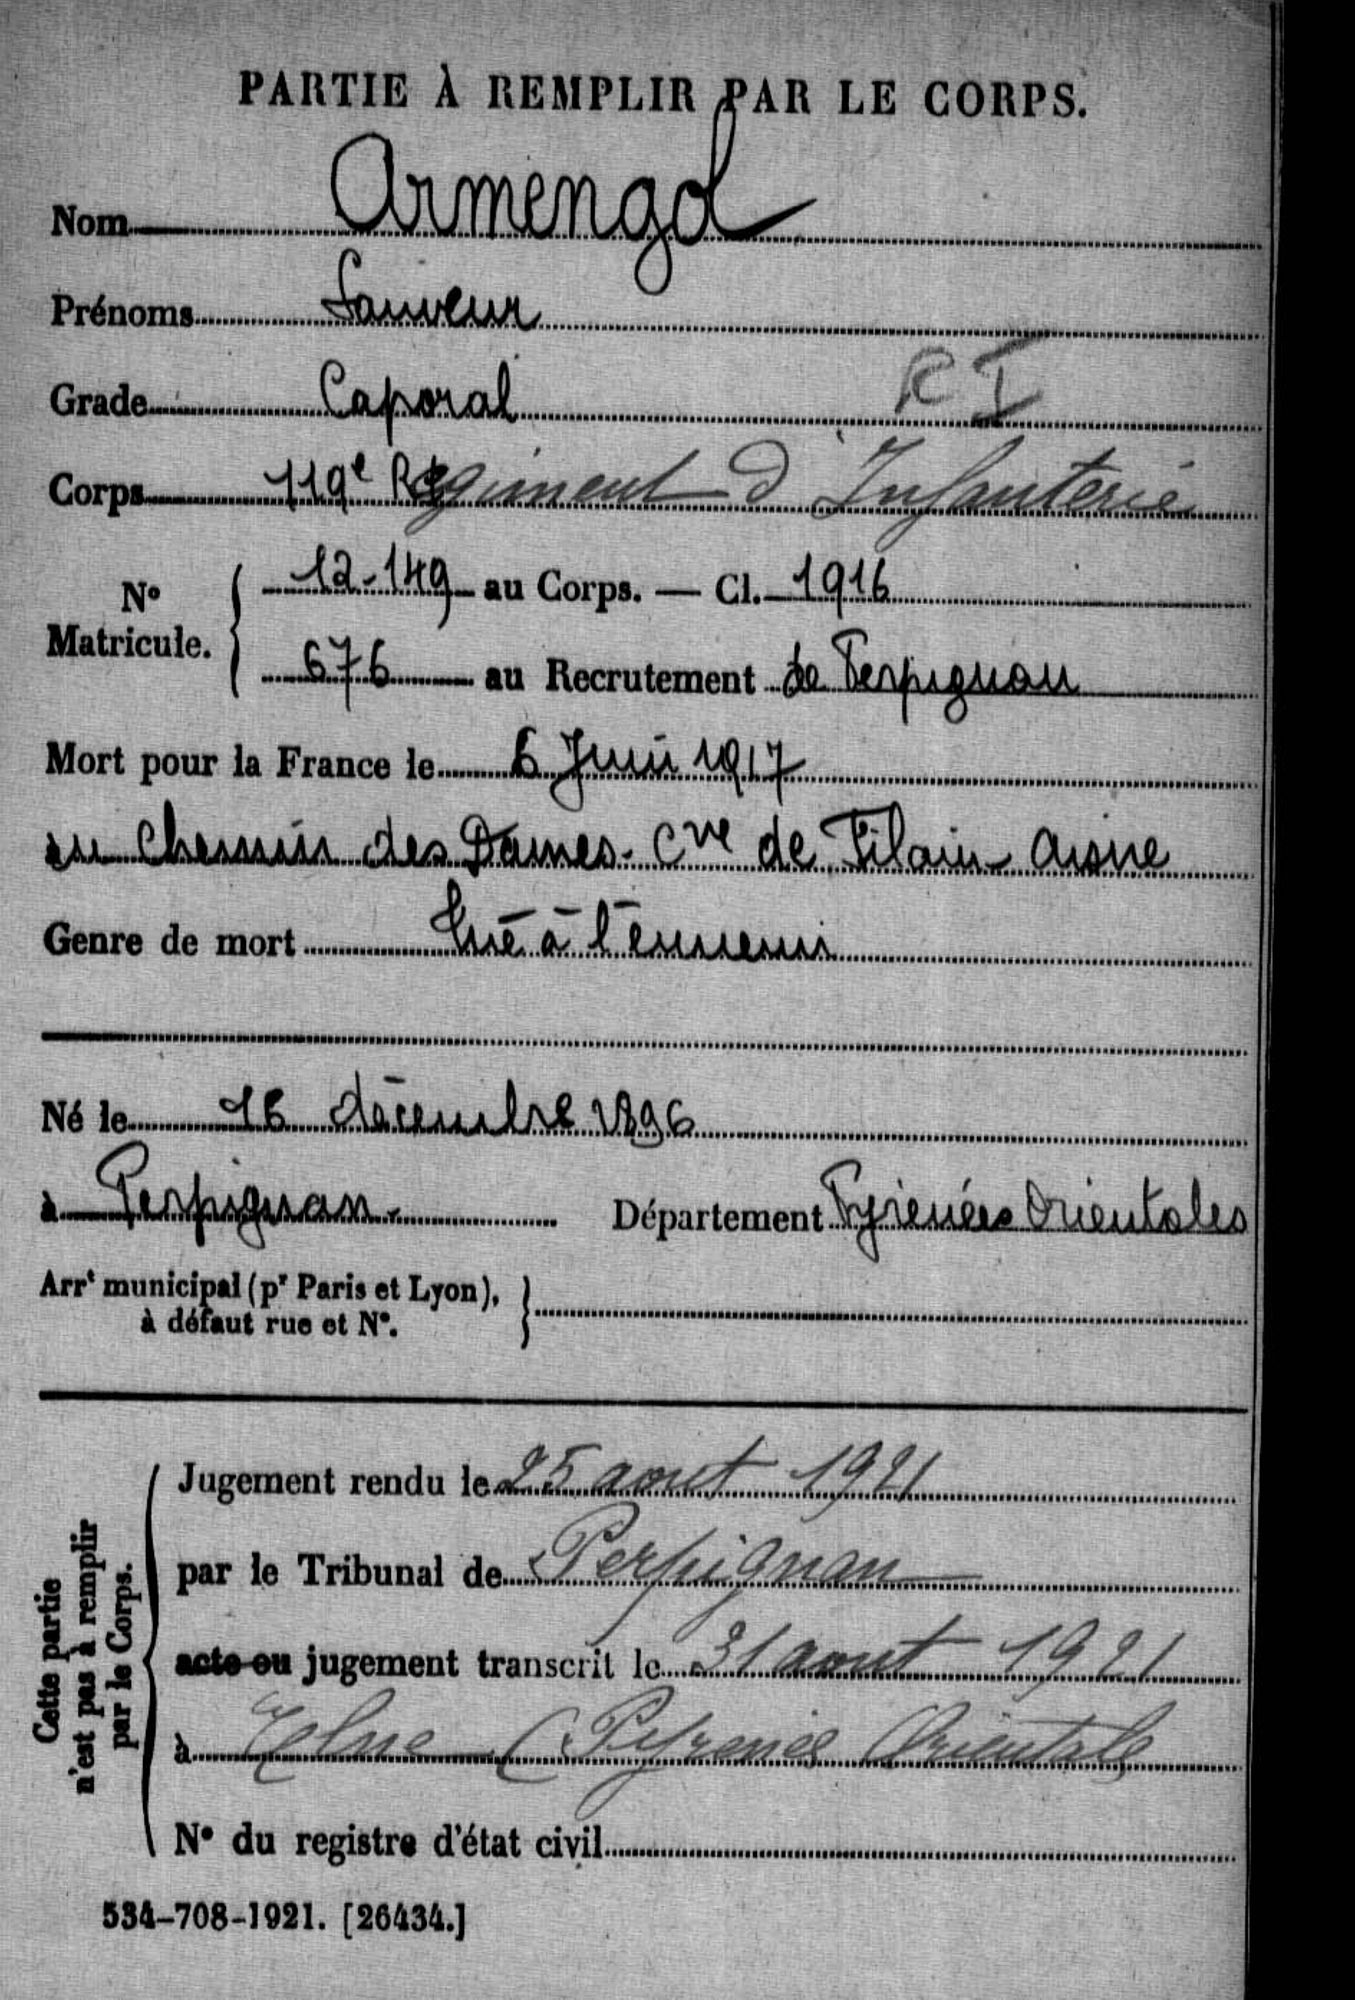 PARTIE À REMPLIR PAR LE CORPS.
Nom Armengol
Prénoms Sauveur
Grade Caporal
R I
Corps 119e Régiment d'Infanterie
No Matricule. { 12-149 au Corps. — Cl. 1916
676 au Recrutement de Perpignan
Mort pour la France le 6 Juin 1917
au Chemin des Dames- Cne de Filain Aisne
Genre de mort Tué à l'ennemi
Né le 16 décembre 1896
à Perpignan- Département Pyrénées Orientales
Arrt municipal (pr Paris et Lyon), à défaut rue et No. }
Cette partie n'est pas à remplir par le Corps.
Jugement rendu le 25 aout 1921
par le Tribunal de Perpignan
acte ou jugement transcrit le 31 aout 1921
à Elne (Pyrenées Orientales
No du registre d'état civil
534-708-1921. [26434.]